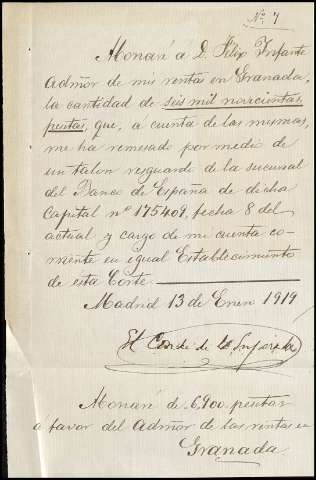 Nº 7
Monaré á D. Felix Infante
Admór de mis rentas en Granada,
la cantidad de seis mil novecientas
pesetas, que, á cuenta de las mismas,
me ha remesado por medio de
un talon resguardo de la sucursal
del Banco de España de dicha
Capital nº 175409, fecha 8 del
actual y cargo de mi cuenta co-
rriente en igual Establecimiento
de esta Corte.
Madrid 13 de Enero 1919
El Conde de
Monaré de 6,900 pesetas
á favor del Admór de las rentas en
Granada